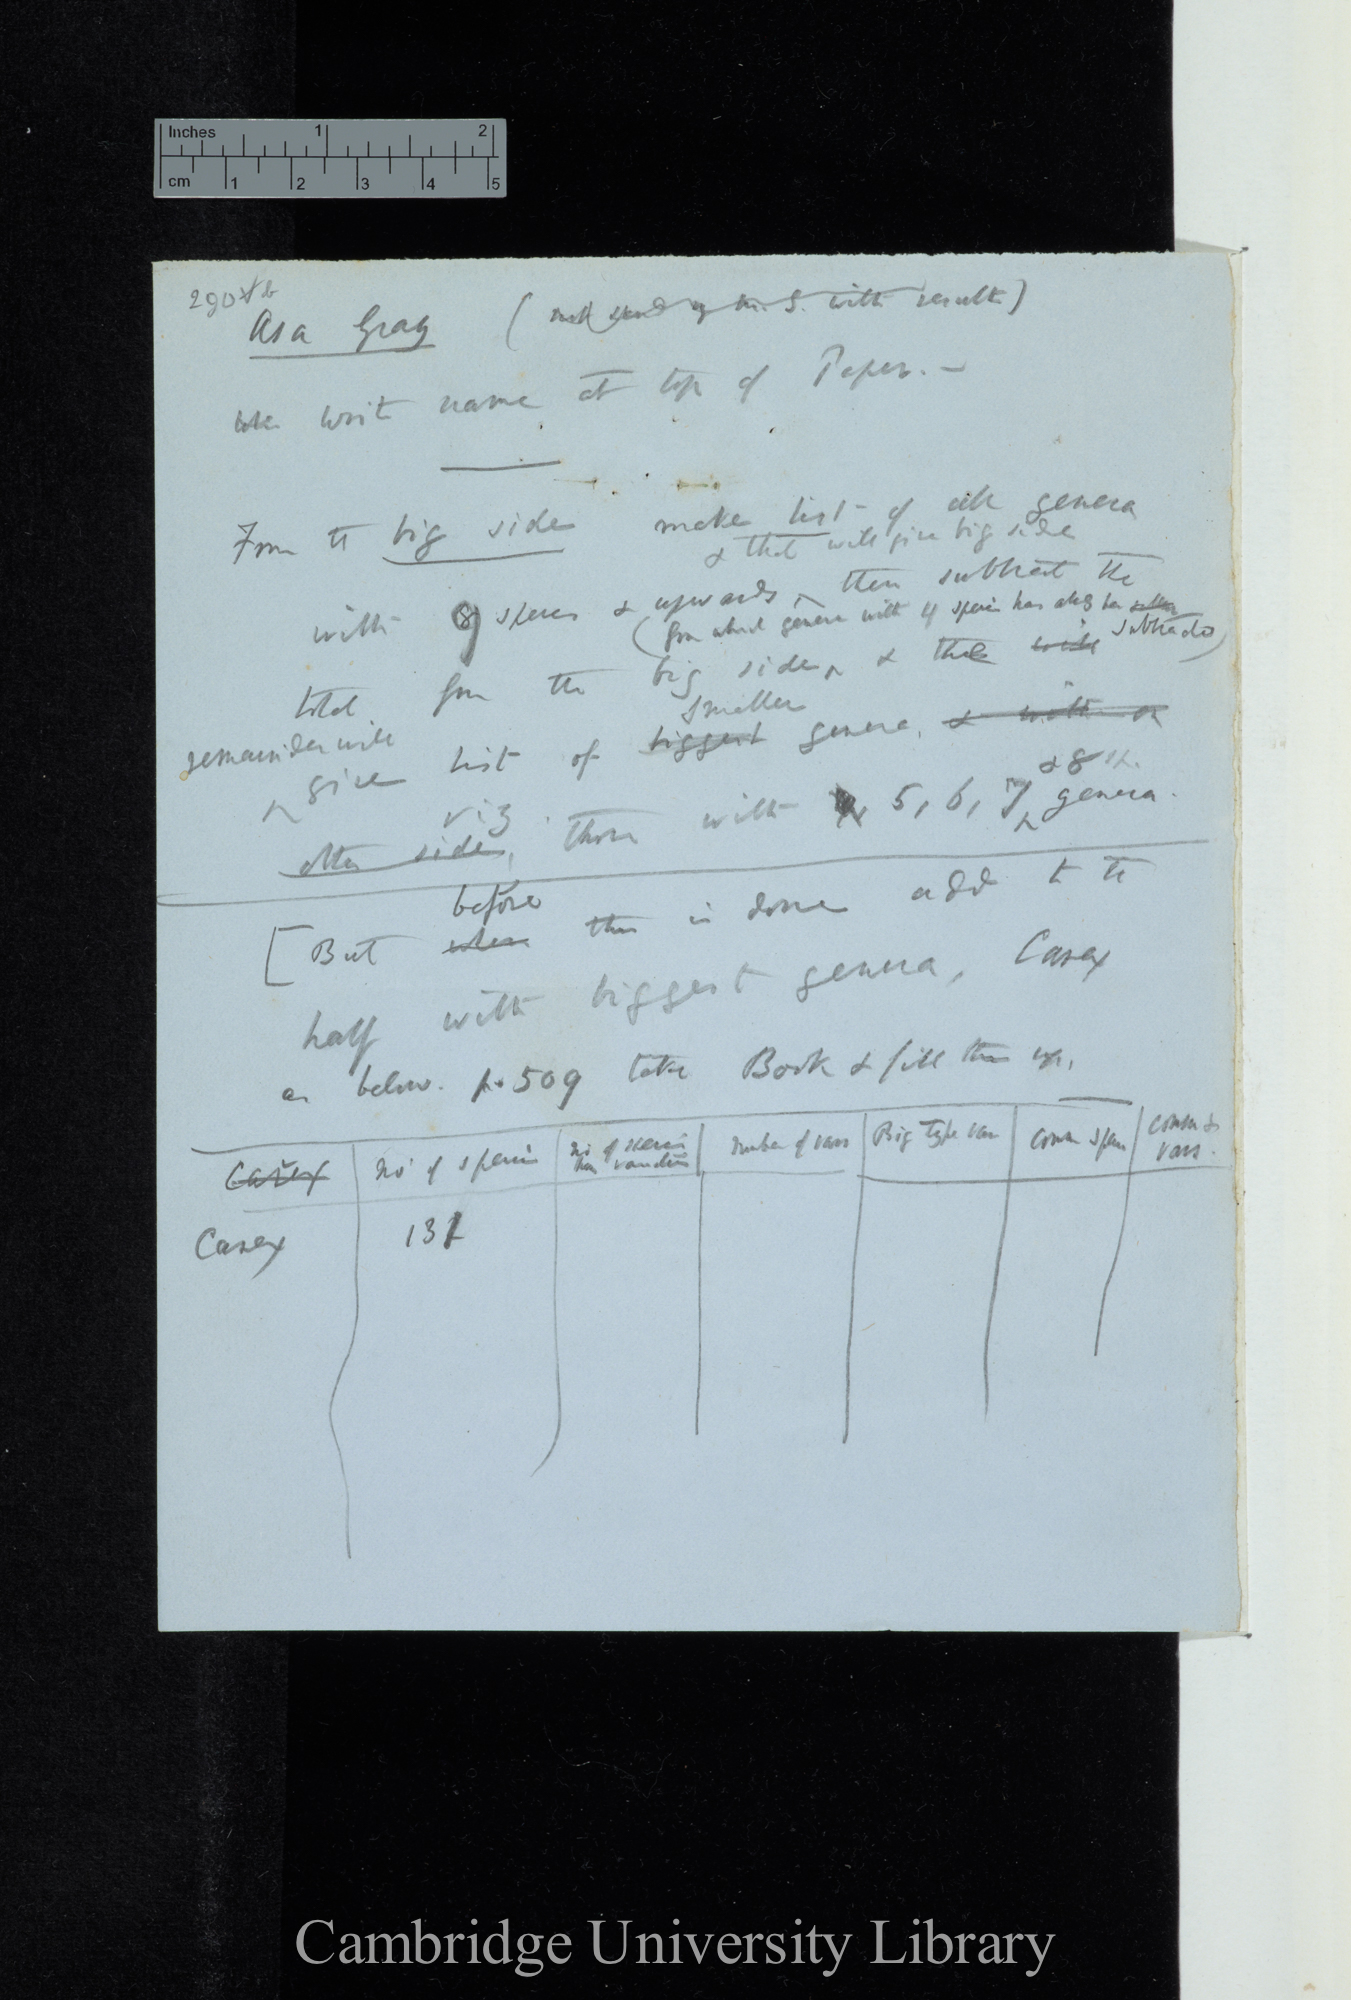 Inches 1 2
cm 1 2 3 4 5
Asa Gray (
writ name at top of Paper. —
From the big side make list of all genera
& that will give big side
with 9 species & upwards, then subtract the
(from which genera with 4 species has already been
subtracted)
total from the big side, & the with
smaller
remainder will
give list of biggest genera, & with
& 8 sp.
viz
other side, those with 5, 6, 7, genera.
before
[But when this is done add to the
half with biggest genera, Carex
as below. p. 509 take Book & fill them up.
Carex No of species No of species having varieties Number of vars Big type var Comm species Comm & vars.
Carex 132
Cambridge University Library